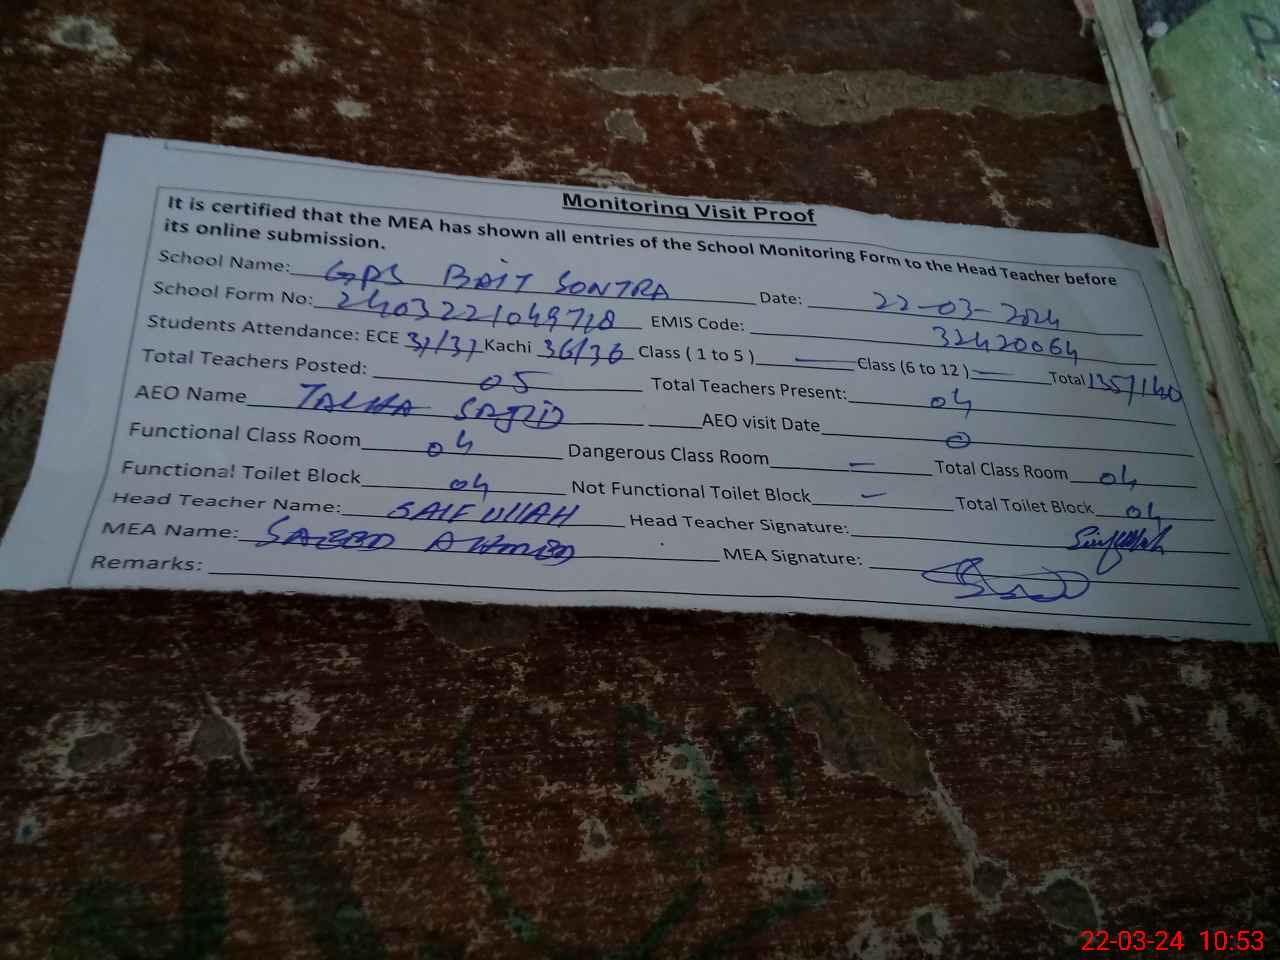 Monitoring Visit Proof
It is certified that the MEA has shown all entries of the School Monitoring Form to the Head Teacher before
its online submission.
School Name: GPS BAIT SONTRA Date: 22-03-2024
School Form No: 2403221049718 EMIS Code: 32420064
Students Attendance: ECE 37/37 Kachi 36/36 Class ( 1 to 5 ) — Class (6 to 12 ) — Total 135/140
Total Teachers Posted: 05 Total Teachers Present: 04
AEO Name TALHA SAJID AEO visit Date 0
Functional Class Room 04 Dangerous Class Room — Total Class Room 04
Functional Toilet Block 04 Not Functional Toilet Block — Total Toilet Block 04
Head Teacher Name: SAIF ULLAH Head Teacher Signature: Saifullah
MEA Name: SAEED AHMED MEA Signature:
Remarks:
22-03-24 10:53